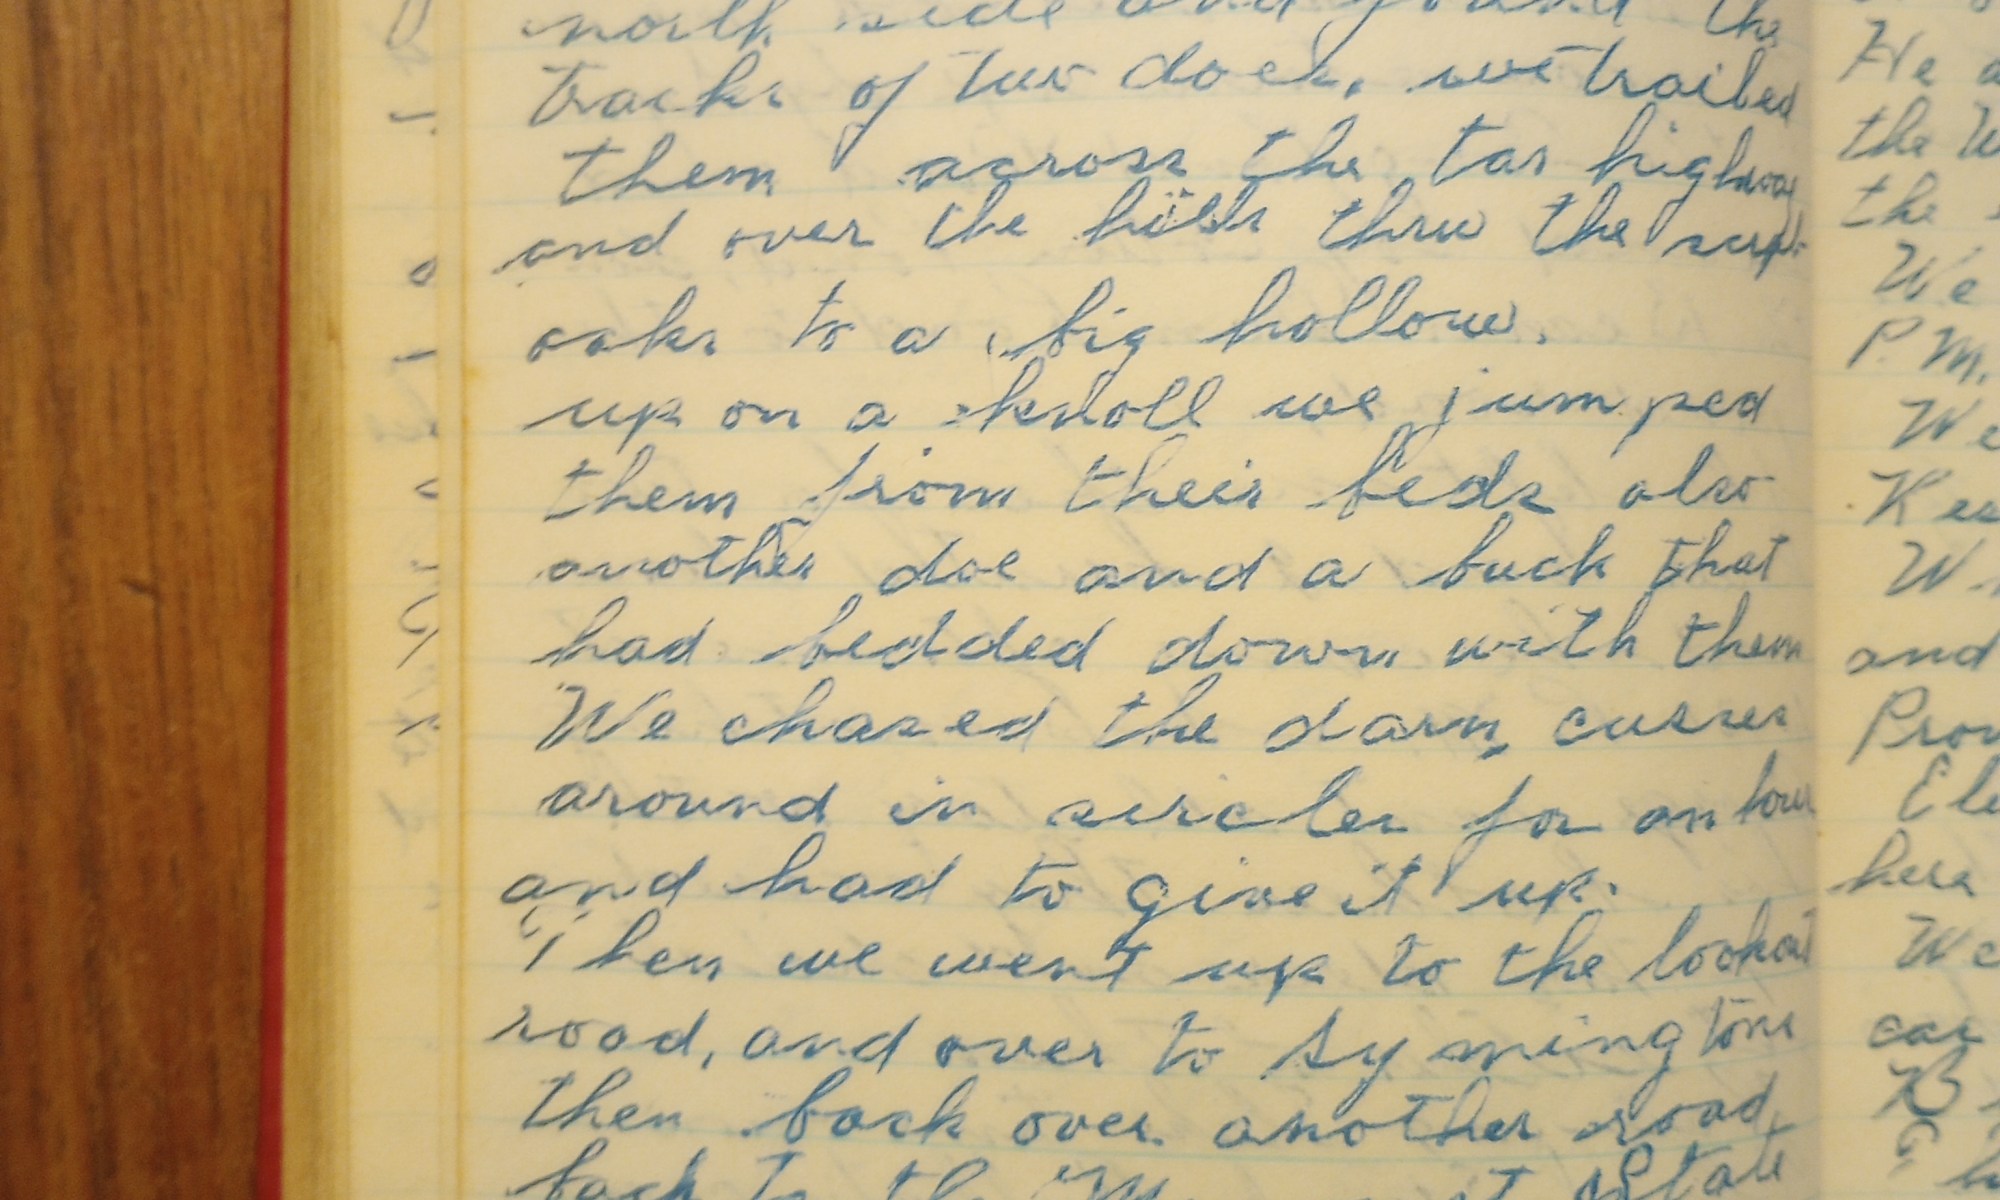 north side and found the
tracks of two does, we trailed
them across the tar highway
and over the hills thru the
oaks to a big hollow.
up on a knoll we jumped
them from their beds also
another doe and a buck that
had bedded down with them
We chased the darn cusses
around in sircles for an hour
and had to give it up.
Then we went up to the lookout
road, and over to Symingtons
then back over another road
back to the State
He
the
the
We
P.M.
We
W
and
here
We
car